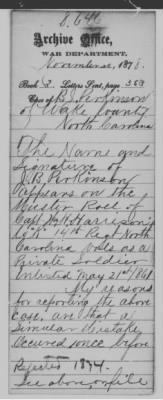 8.646
Archive Office,
WAR DEPARTMENT,
November 1878.
Book 2 Letters Sent, page 303
Case of B. Perkinson
of Wake County
North Carolina
The Name and
Signature of
B. Perkinson
Appears on the
Muster Roll of
Capt. Harrison's
Co "K" 14th Regt North
Carolina Vols as a
Private Soldier
Enlisted May 21st 1861
My reasons
for reporting the above
case, are that a
Simular Mistake
Occured once before
Rejected 1874.
See above on file